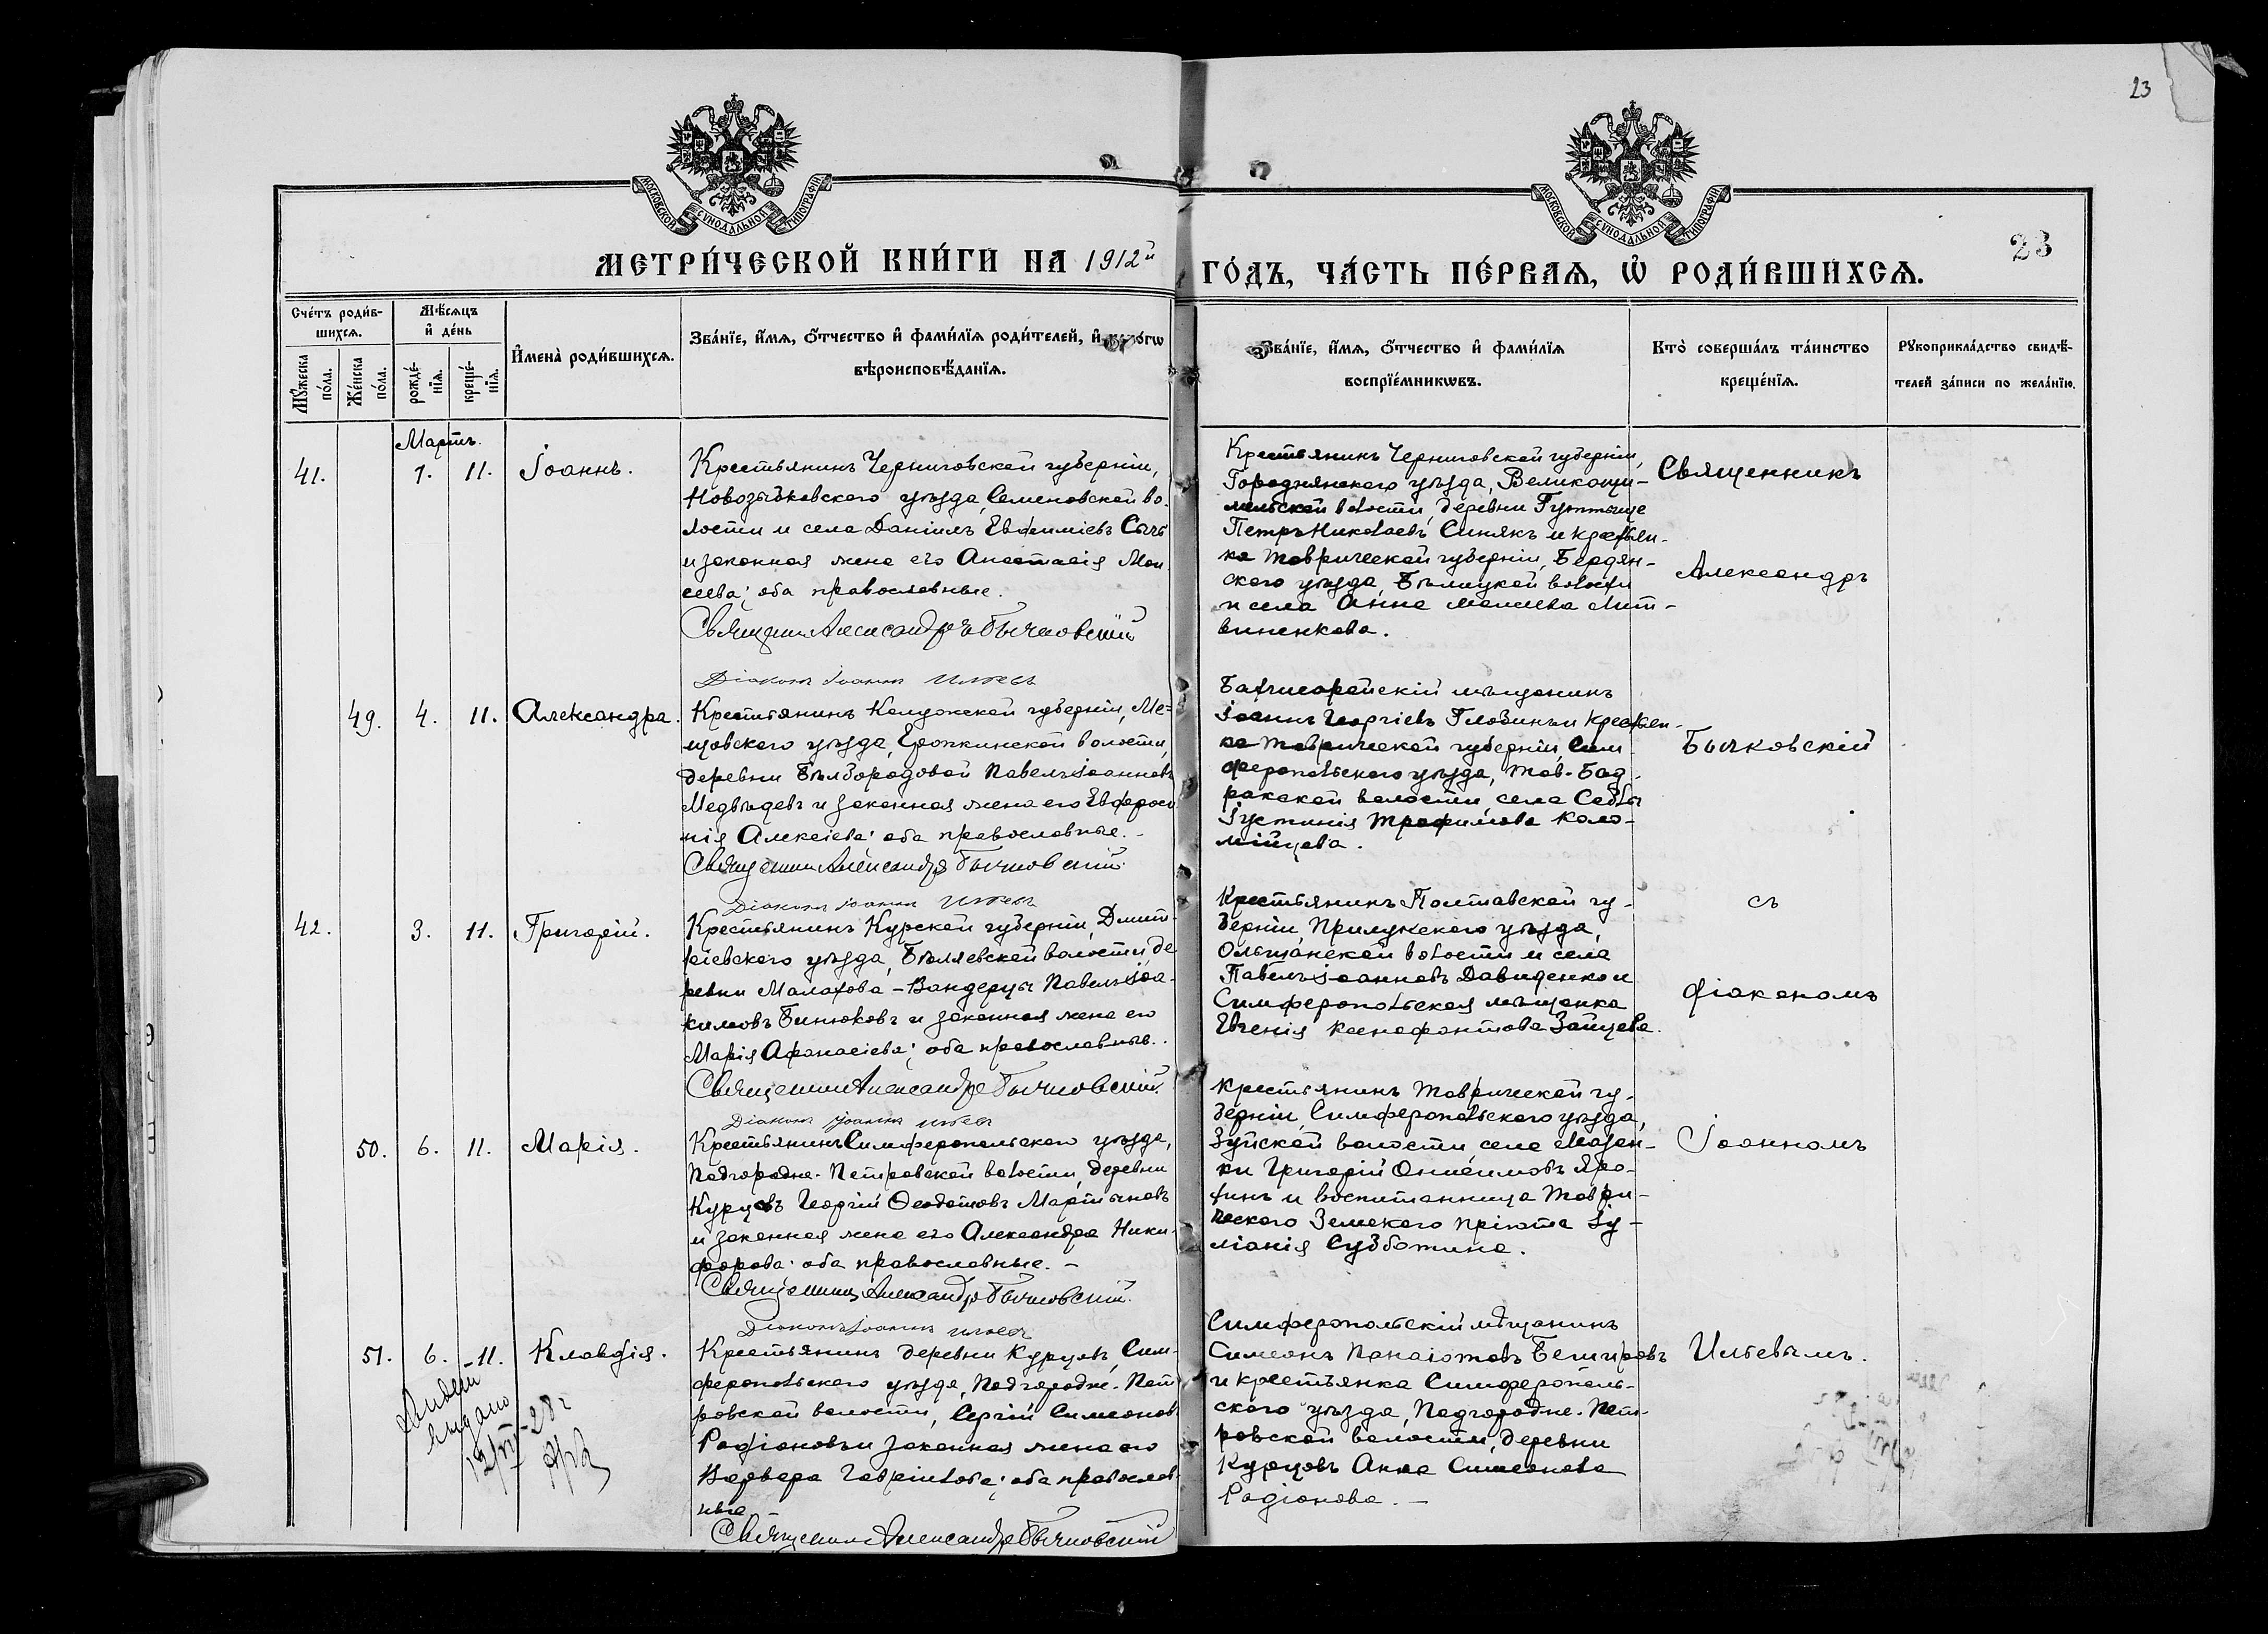 23
МОСКОВСКОЙ СѴНОДАЛЬНОЙ ТИПОГРАФІИ
МОСКОВСКОЙ СѴНОДАЛЬНОЙ ТИПОГРАФІИ
МЕТРИ́ЧЕСКОЙ КНИ́ГИ НА 1912й
ГО́ДЪ, ЧА́СТЬ ПЕ́РВАѦ, Ѡ РОДИ́ВШИХСѦ.
23
Сче́тъ роди́в-
шихсѧ.
Мꙋ́жеска
по́ла.
Же́нска
по́ла.
Мѣ́сѧцъ
и҆ де́нь
рожде́-
нїѧ.
креще́-
нїѧ.
И҆мена̀ роди́вшихсѧ.
Зва́нїе, и҆́мѧ, ѻ҆́тчество и҆ фами́лїѧ роди́телей, и҆
вѣроисповѣ́данїѧ.
Зва́нїе, и҆́мѧ, ѻ҆́тчество и҆ фами́лїѧ
воспрїе́мникѡвъ.
Кто̀ соверша́лъ та́инство
креще́нїѧ.
Рꙋкоприкла́дство свидѣ́-
телей за́писи по жела́нїю.
Мартъ.
41.
1.
11.
Іоаннъ.
Крестьянинъ Черниговской губерніи,
Новозыбковского уѣзда, Семеновской во-
лости и села Даніилъ Евфиміевъ Сычъ
и законная жена его Анастасія Мои
сеева; оба православные.
Священникъ Александръ Бычковскій
Діаконъ Іоаннъ Ильевъ
Крестьянинъ Черниговской губерніи,
Городнянского уѣзда, Великощи-
мельской волости, деревни
Петръ Николаевъ Синякъ и крестьян-
ка Таврической губерніи, Бердян-
ского уѣзда, волости
и села Анна Моисеева Лит-
виненкова.
49.
4.
11.
Александра.
Крестьянинъ Калужской губерніи, Ме-
щовского уѣзда, Еропкинской волости,
деревни Бѣлбородовой Павелъ Іоанновъ
Медвѣдевъ и законная жена его Евфроси
нія Алексіева; оба православные. -
Священникъ Александръ Бычковскій
Діаконъ Іоаннъ Ильевъ
Бахчисарайскій мѣщанинъ
Іоаннъ Георгіевъ Глобинъ и крестьян-
ка Таврической губерніи, Сим-
феропольского уѣзда, Тав-Бад-
ракской волости, села Саблы
Іустинія Трофимова Коло-
мійцева.
42.
3.
11.
Григорій.
Крестьянинъ Курской губерніи, Дмит-
ріевского уѣзда, Бѣляевской волости, де
ревни Малахова - Вандерцы Павелъ Іоа-
кимовъ Бинюковъ и законная жена его
Марія Афанасіева; оба православные.
Священникъ Александръ Бычковскій.
Діаконъ Іоаннъ Ильевъ
Крестьянинъ Полтавской гу-
берніи, Прилукского уѣзда,
Ольшанской волости и села
Павелъ Іоанновъ Давиденко и
Симферопольская мѣщанка
Евгенія Ксенофонтова Зайцева.
50.
6.
11.
Марія.
Крестьянинъ Симферопольского уѣзда,
Подгородне-Петровской волости, деревни
Курцовъ Георгій Ѳеодотовъ Мартыновъ
и законная жена его Александра Ники-
форова; оба православные. -
Священникъ Александръ Бычковскій.
Діаконъ Іоаннъ Ильевъ
Крестьянинъ Таврической гу-
берніи, Симферопольского уѣзда,
Зуйской волости, села Мазан-
ки Григорій Онисимовъ Яро-
хинъ и воспитанница Таври-
ческого Земского пріюта Іу-
ліанія Субботина.
51.
6.
-11.
Клавдія.
Крестьянинъ деревни Курцовъ, Сим-
феропольского уѣзда, Подгородне-Пет
ровской волости, Сергій Симеоновъ
Родіоновъ и законная жена его
Варвара Гавріилова; оба православ-
ные
Священникъ Александръ Бычковскій
Симферопольскій мѣщанинъ
Симеонъ Панаіотовъ
и крестьянка Симферополь-
ского уѣзда, Подгородне-Пет-
ровской волости, деревни
Курцовъ Анна Симеонова
Родіонова. -
выдано
12/VI-28 г
Священникъ
Александръ
Бычковскій
съ
діакономъ
Іоанномъ
Ильевымъ.